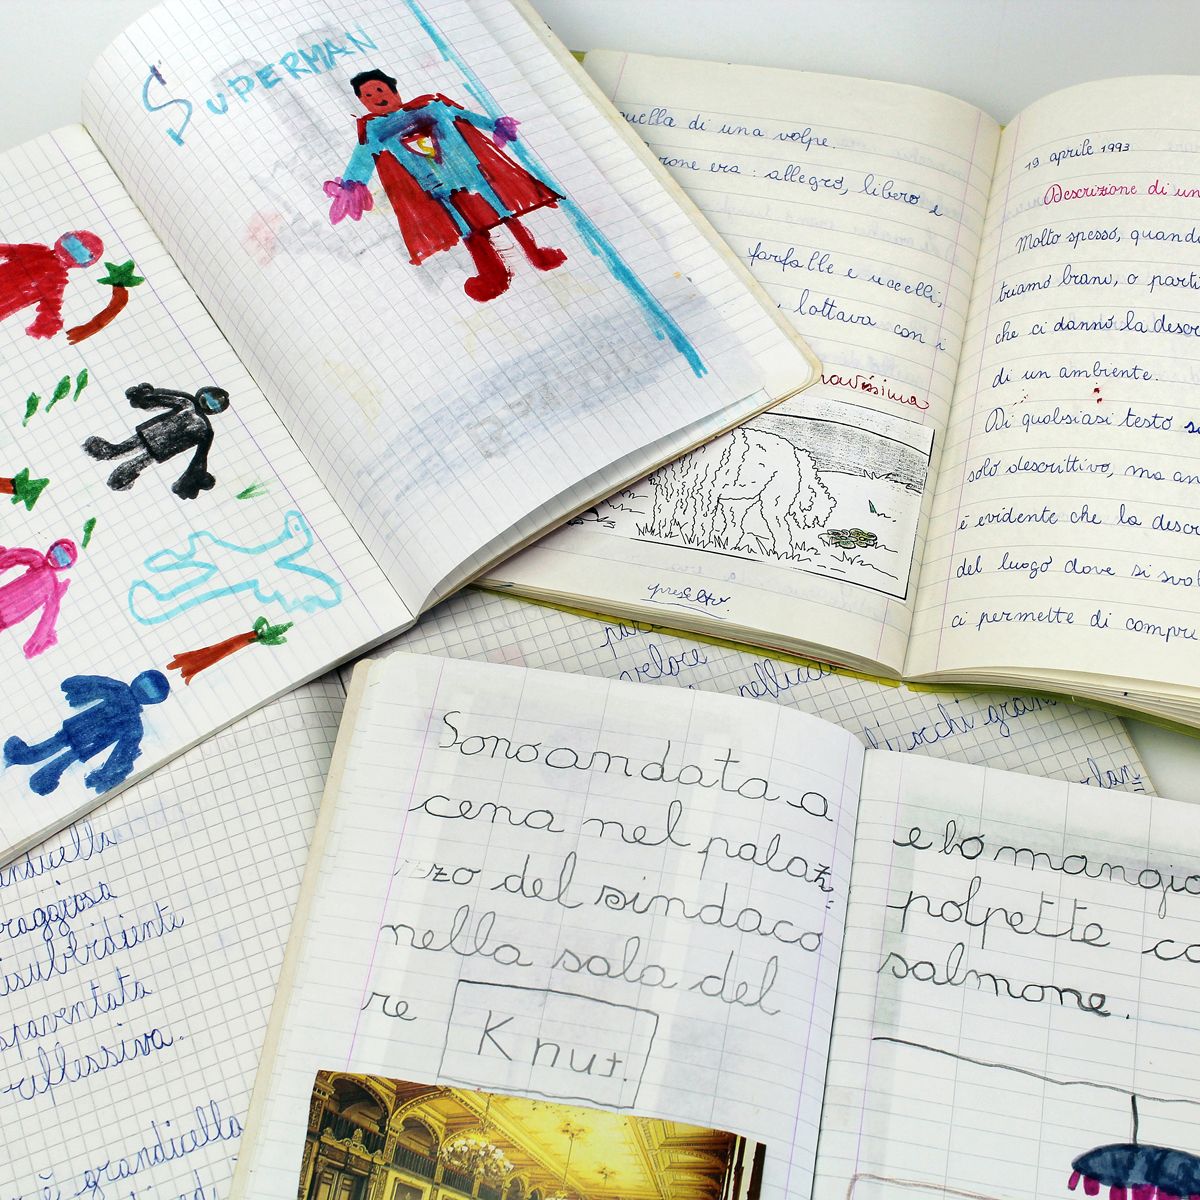 SUPERMAN
quella di una volpe.
era: allegro, libero e
farfalle e uccelli,
lottava con i
19 aprile 1993
Descrizione di un
Molto spesso, quando
triamo brani, o parti
che ci danno la descr
di un ambiente.
Di qualsiasi testo
solo descrittivo, ma an
è evidente che la descr
del luogo dove si svol
ci permette di compre
veloce
occhi gran
Sono andata a
cena nel palaz=
zo del sindaco
nella sala del
re Knut.
e ho mangia
polpette co
salmone.
raggiosa
spaventata
riflessiva.
è grandicella